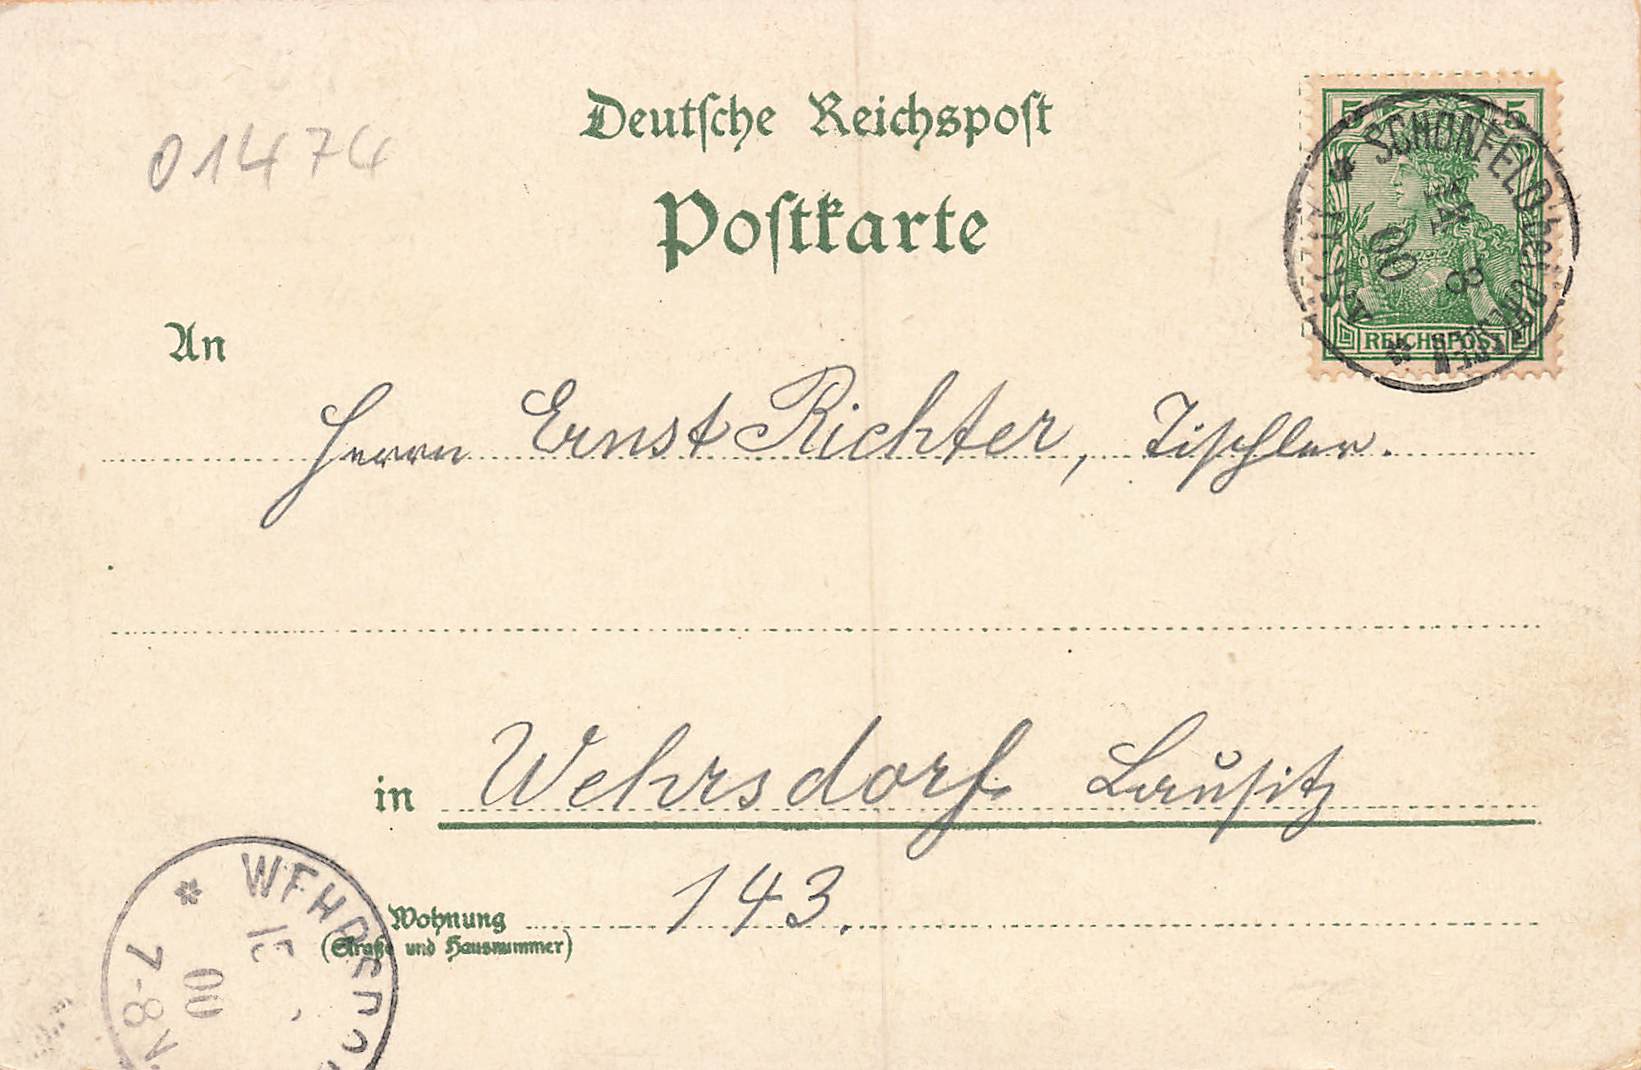 01474
Deutsche Reichspost
Postkarte
5 5
SCHÖNFELD bei
14 8
00
REICHSPOST
An
Herrn Ernst Richter, Tischler.
in Wehrsdorf Lausitz
Wohnung 143.
(Straße und Hausnummer)
WEHRSDO
00
7-8